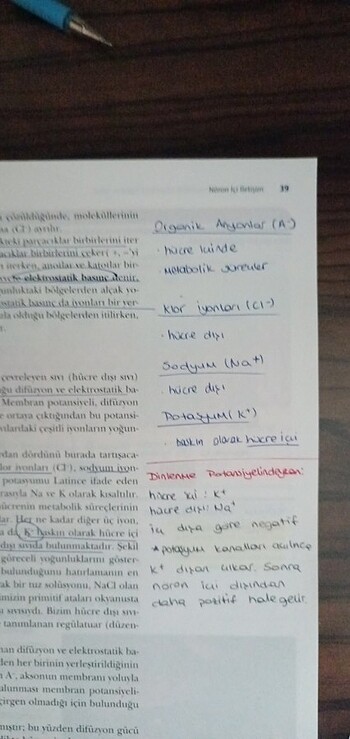 Nöron İçi İletişim 39
çözüldüğünde, moleküllerinin
(Cl⁻) ayrılır.
parçacıklar birbirlerini iter
parçacıklar birbirlerini çeker (+, -'yi
iterken, anyonlar ve katotlar bir-
elektrostatik basınç denir.
bölgelerden alçak yo-
basınç da iyonları bir yer-
olduğu bölgelerden itilirken,
Organik Anyonlar (A⁻)
· hücre içinde
· Metabolik süreçler
Klor iyonları (Cl⁻)
· hücre dışı
Sodyum (Na⁺)
· hücre dışı
Potasyum (K⁺)
· baskın olarak hücre içi
çevreleyen sıvı (hücre dışı sıvı)
difüzyon ve elektrostatik ba-
Membran potansiyeli, difüzyon
ortaya çıktığından bu potansi-
çeşitli iyonların yoğun-
dördünü burada tartışaca-
iyonları (Cl⁻), sodyum iyon-
potasyumu Latince ifade eden
Na ve K olarak kısaltılır.
hücrenin metabolik süreçlerinin
Her ne kadar diğer üç iyon,
da, K⁺ baskın olarak hücre içi
dışı sıvıda bulunmaktadır. Şekil
göreceli yoğunluklarını göster-
bulunduğunu hatırlamanın en
bir tuz solüsyonu, NaCl olan
primitif ataları okyanusta
sıvısıydı. Bizim hücre dışı sıvı-
tanımlanan regülatuar (düzen-
Dinlenme Potansiyelindeyken:
hücre içi : K⁺
hücre dışı : Na⁺
içi dışa göre negatif
* potasyum kanalları açılınca
K⁺ dışarı çıkar. Sonra
nöron içi dışından
daha pozitif hale gelir.
difüzyon ve elektrostatik ba-
her birinin yerleştirildiğinin
A⁻, aksonun membranı yoluyla
membran potansiyeli-
olmadığı için bulunduğu
bu yüzden difüzyon gücü